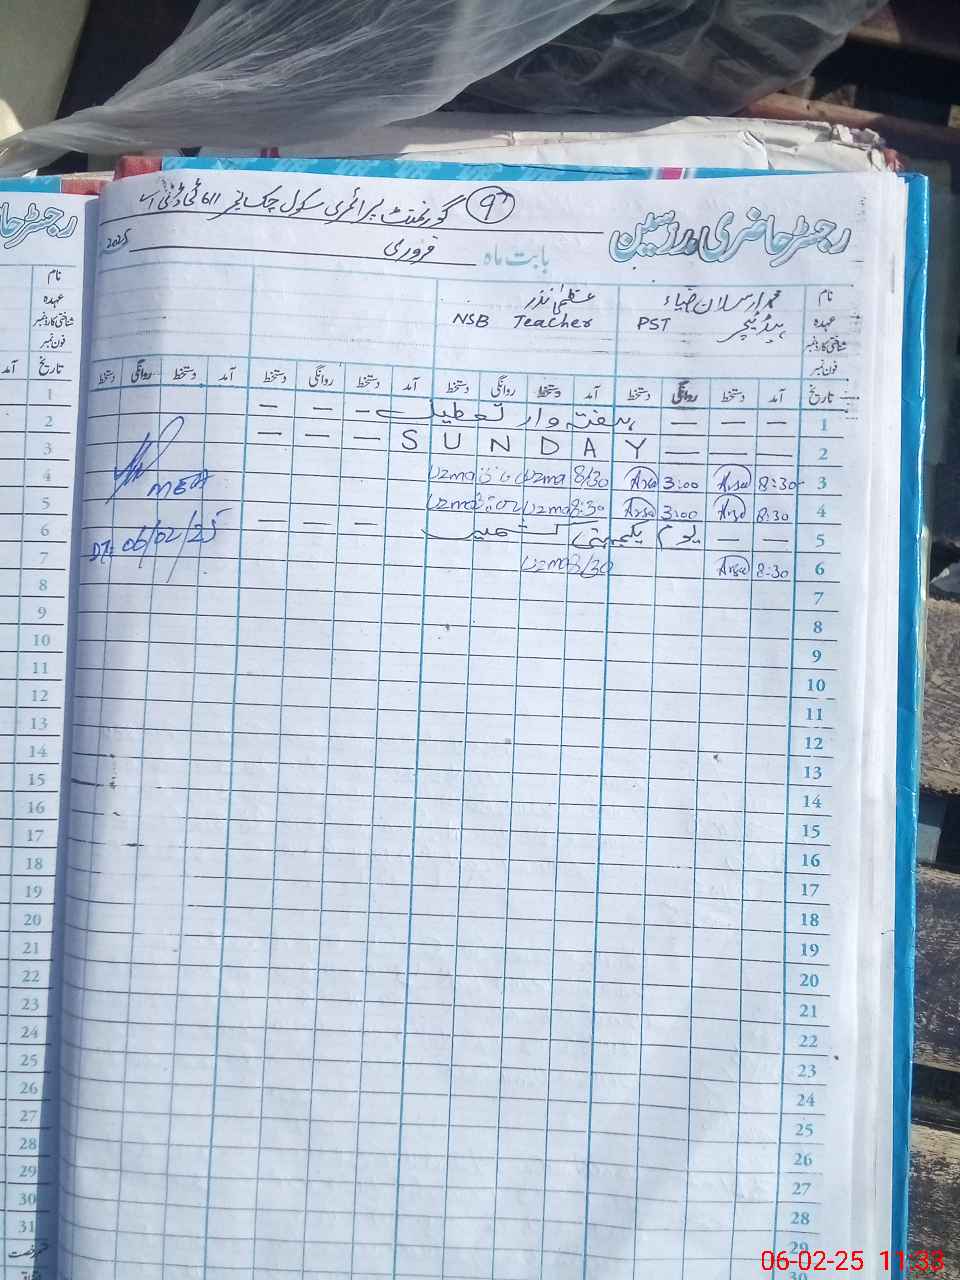 رجسٹر حاضری مدرسین
۹۲ گورنمنٹ پرائمری سکول چک نمبر 611
بابت ماہ فروری 2025
نام محمد ارسلان ضیاء عظمیٰ نذر
عہدہ ہیڈ ٹیچر PST NSB Teacher
شناختی کارڈ نمبر
فون نمبر
تاریخ آمد دستخط روانگی دستخط آمد دستخط روانگی دستخط آمد دستخط روانگی دستخط آمد دستخط روانگی دستخط
1 — — — ہفتہ وار تعطیل — — —
2 — — SUNDAY — — —
3 8:30 Arsa 3:00 Arsa 8/30 uzma uzma
4 8:30 Arsa 3:00 Arsa 8:30 uzma uzma
5 — — یوم یکجہتی کشمیر — — —
6 8:30 Arsa 8/30 uzma
MEA
DT: 06/02/25
7
8
9
10
11
12
13
14
15
16
17
18
19
20
21
22
23
24
25
26
27
28
29
30
رجسٹر حا
نام
عہدہ
شناختی کارڈ نمبر
فون نمبر
تاریخ آمد
1
2
3
4
5
6
7
8
9
10
11
12
13
14
15
16
17
18
19
20
21
22
23
24
25
26
27
28
29
30
31
06-02-25 11:33